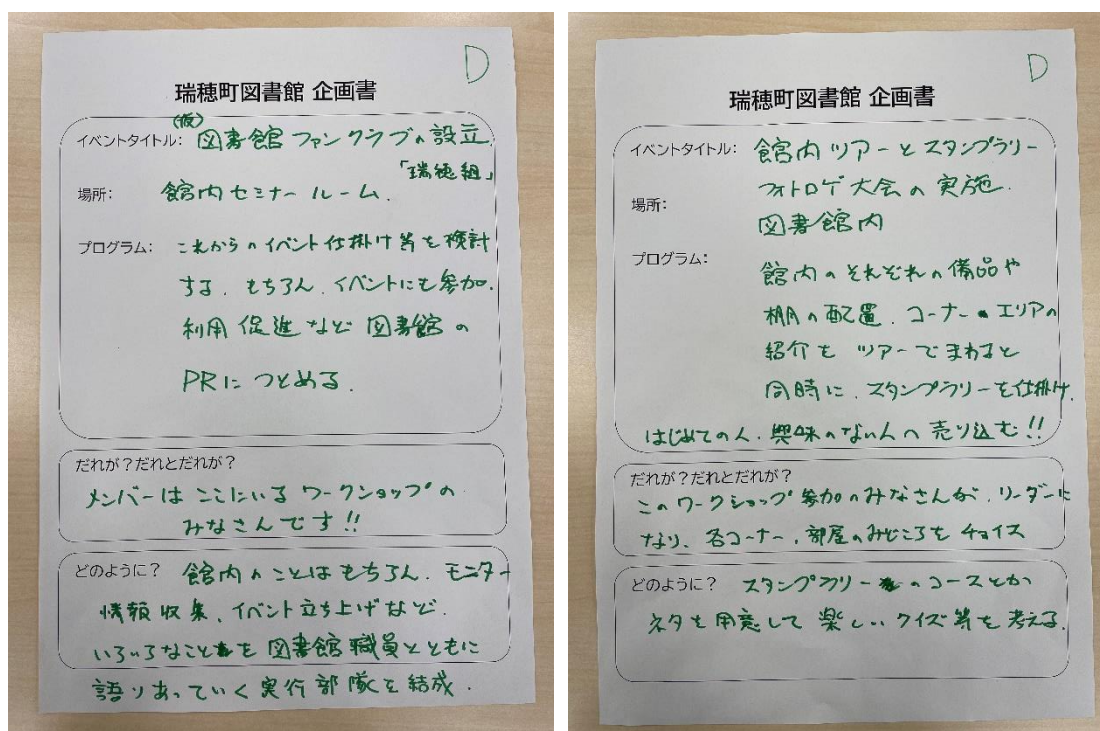 D
瑞穂町図書館 企画書
(仮)
イベントタイトル: 図書館ファンクラブの設立
「瑞穂組」
場所: 館内セミナールーム.
プログラム: これからのイベント仕掛け等を検討
する. もちろん. イベントにも参加.
利用促進など図書館の
PRにつとめる.
だれが?だれとだれが?
メンバーはここにいるワークショップの
みなさんです!!
どのように? 館内のことはもちろん. モニター
情報収集、イベント立ち上げなど.
いろいろなことを図書館職員とともに
語りあっていく実行部隊を結成.
D
瑞穂町図書館 企画書
イベントタイトル: 館内ツアーとスタンプラリー
フォトロゲ大会の実施.
場所:
図書館内
プログラム:
館内のそれぞれの備品や
棚の配置. コーナー・エリアの
紹介も ツアーでまわると
同時に. スタンプラリーを仕掛け.
はじめての人. 興味のない人へ売り込む!!
だれが?だれとだれが?
このワークショップ参加のみなさんが. リーダーに
なり、各コーナー. 部屋のみどころをチョイス
どのように? スタンプラリーのコースとか
ネタを用意して楽しいクイズ等を考える.